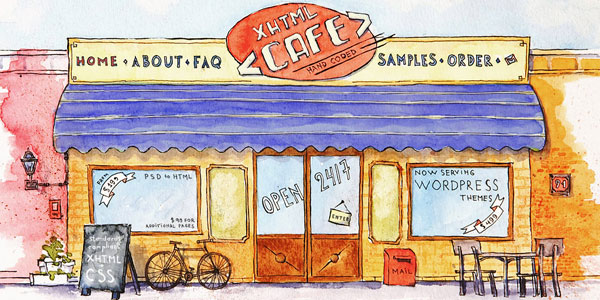 XHTML
<CAFE>
HAND CODED
HOME • ABOUT • FAQ
SAMPLES • ORDER •
OPEN 24/7
ENTER
FROM
$199
PSD TO HTML
$99 FOR
ADDITIONAL PAGES
NOW SERVING
WORDPRESS
THEMES!
$499
standards
compliant
XHTML
&
CSS
MAIL